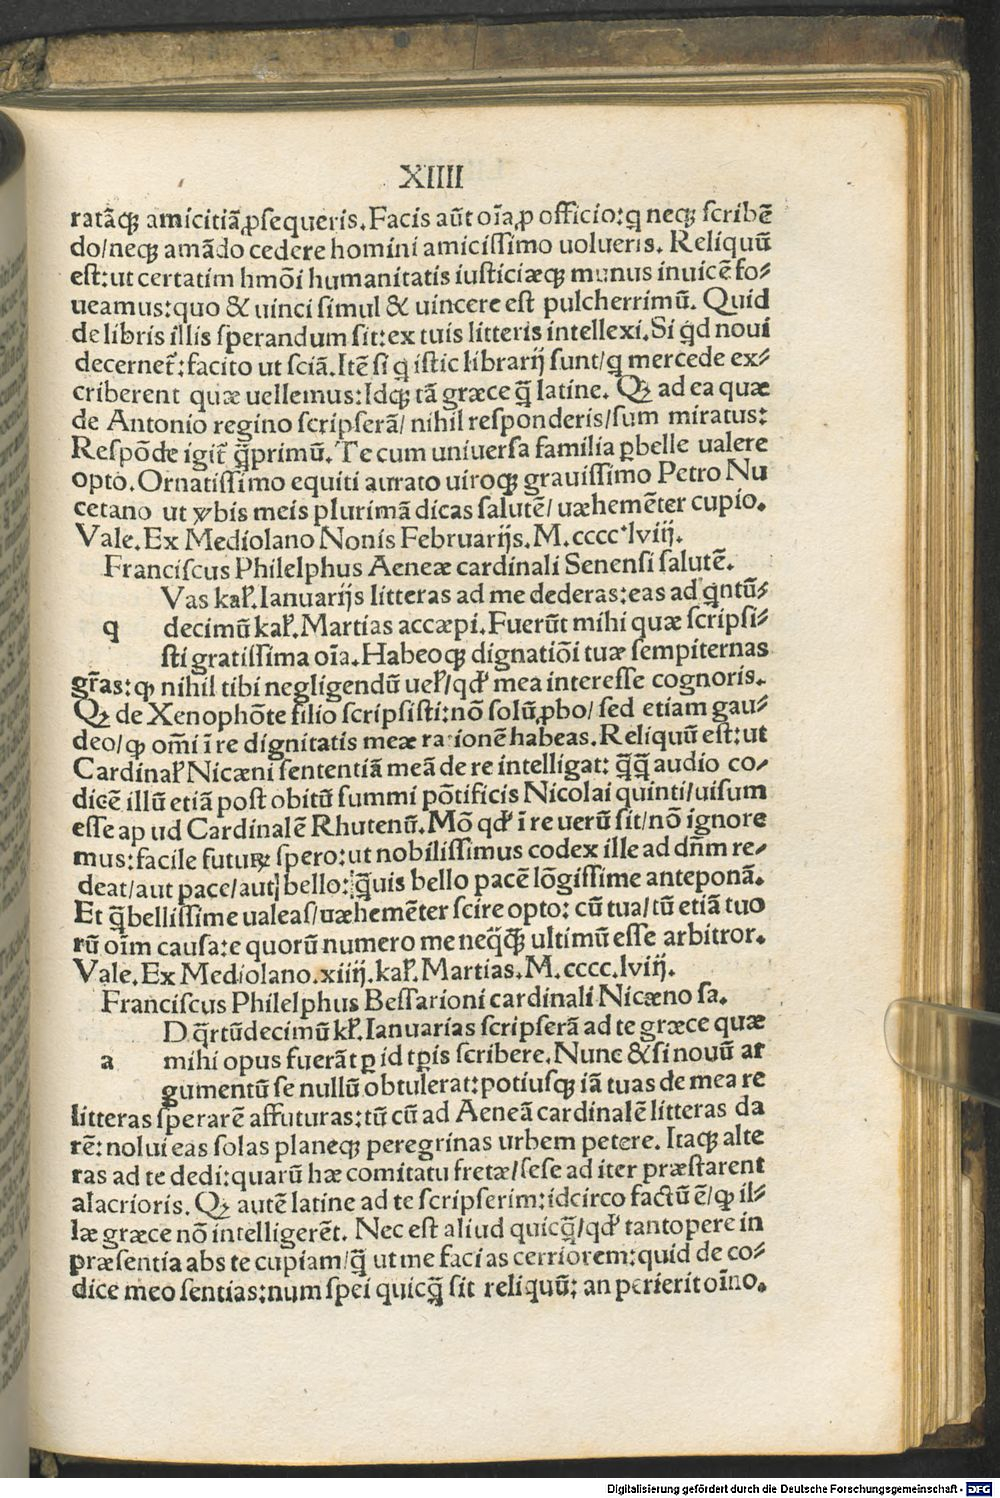 XIIII
ratāqꝫ amicitiā ꝓsequeris. Facis aūt oīa ꝓ officio: q̇ neqꝫ scribē
do/neqꝫ amādo cedere homini amicissimo uolueris. Reliquū
est: ut certatim hmōi humanitatis iusticiæqꝫ munus inuicē fo⸗
ueamus: quo & uinci simul & uincere est pulcherrimū. Quid
de libris illis sperandum sit: ex tuis litteris intellexi. Si qd noui
decernet᷑: facito ut sciā. Itē si q̇ istic librarij sunt/q̇ mercede ex⸗
criberent quæ uellemus: Idqꝫ tā græce q̄ latine. Qꝫ ad ea quæ
de Antonio regino scripserā/ nihil responderis/sum miratus:
Respōde igit᷑ q̄primū. Te cum uniuersa familia ꝑbelle ualere
opto. Ornatissimo equiti aurato uiroqꝫ grauissimo Petro Nu
cetano ut ỽbis meis plurimā dicas salutē/ uæhemēter cupio.
Vale. Ex Mediolano Nonis Februarijs. M.cccc.lviij.
Franciscus Philelphus Aeneæ cardinali Senensi salutē.
Vas kaƚ. Ianuarijs litteras ad me dederas: eas ad q̇ntū⸗
q decimū kaƚ. Martias accæpi. Fuerūt mihi quæ scripsi⸗
sti gratissima oīa. Habeoqꝫ dignatiōi tuæ sempiternas
gr̄as: ꝙ nihil tibi negligendū ueƚ/qđ mea interesse cognoris.
Qꝫ de Xenophōte filio scripsisti: nō solū ꝓbo/ sed etiam gau⸗
deo/ꝙ om̄i ī re dignitatis meæ rationē habeas. Reliquū est: ut
Cardinaƚ Nicæni sententiā meā de re intelligat: q̄q̄ audio co⸗
dicē illū etiā post obitū summi pōtificis Nicolai quinti/uisum
esse apud Cardinalē Rhutenū. Mō qđ ī re uerū sit/nō ignore
mus: facile futuꝝ spero: ut nobilissimus codex ille ad dn̄m re⸗
deat/aut pace/aut bello: q̄uis bello pacē lōgissime anteponā.
Et q̄bellissime ualeas/uæhemēter scire opto: cū tua/tū etiā tuo
rū oīm causa: e quorū numero me neq̄q̄ ultimū esse arbitror.
Vale. Ex Mediolano.xiiij.kaƚ.Martias.M.cccc.lviij.
Franciscus Philelphus Bessarioni cardinali Nicæno sa.
D q̄rtūdecimū kƚ. Ianuarias scripserā ad te græce quæ
a mihi opus fuerāt ꝑ id tꝑis scribere. Nunc & si nouū ar
gumentū se nullū obtulerat: potiusqꝫ iā tuas de mea re
litteras sperarē affuturas: tū cū ad Aeneā cardinalē litteras da
rē: nolui eas solas planeqꝫ peregrinas urbem petere. Itaqꝫ alte
ras ad te dedi: quarū hæ comitatu fretæ/sese ad iter præstarent
alacrioris. Qꝫ autē latine ad te scripserim: idcirco factū ē/ꝙ il⸗
læ græce nō intelligerēt. Nec est aliud quicq̄/qđ tantopere in
præsentia abs te cupiam/q̄ ut me facias cerriorem: quid de co⸗
dice meo sentias: num spei quicq̄ sit reliquū: an perierit oīno.
Digitalisierung gefördert durch die Deutsche Forschungsgemeinschaft - DFG